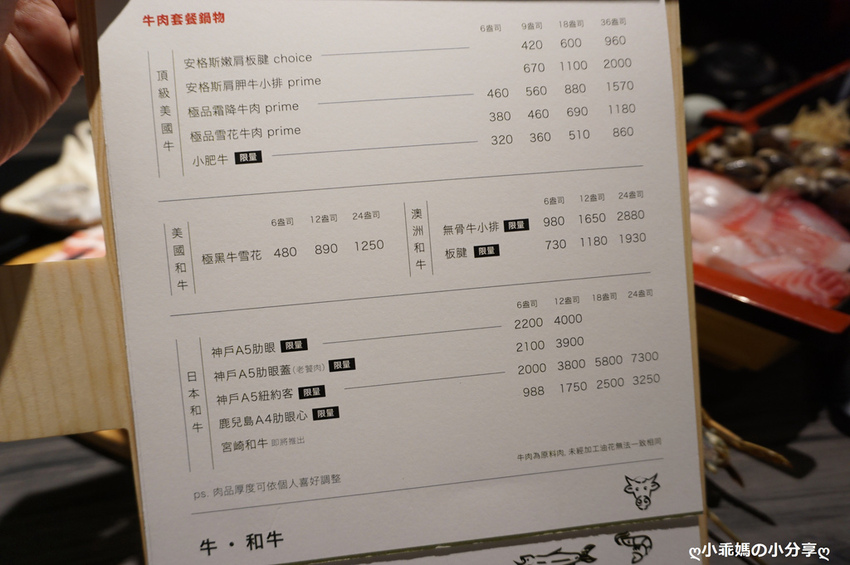 牛肉套餐鍋物
頂級美國牛
6盎司 9盎司 18盎司 36盎司
安格斯嫩肩板腱 choice 420 600 960
安格斯肩胛牛小排 prime 670 1100 2000
極品霜降牛肉 prime 460 560 880 1570
極品雪花牛肉 prime 380 460 690 1180
小肥牛 限量 320 360 510 860
美國和牛
6盎司 12盎司 24盎司
極黑牛雪花 480 890 1250
澳洲和牛
6盎司 12盎司 24盎司
無骨牛小排 限量 980 1650 2880
板腱 限量 730 1180 1930
日本和牛
6盎司 12盎司 18盎司 24盎司
神戶A5肋眼 限量 2200 4000
神戶A5肋眼蓋(老饕肉) 限量 2100 3900
神戶A5紐約客 限量 2000 3800 5800 7300
鹿兒島A4肋眼心 限量 988 1750 2500 3250
宮崎和牛 即將推出
牛肉為原料肉, 未經加工油花無法一致相同
ps. 肉品厚度可依個人喜好調整
牛・和牛
ღ小乖媽の小分享ღ